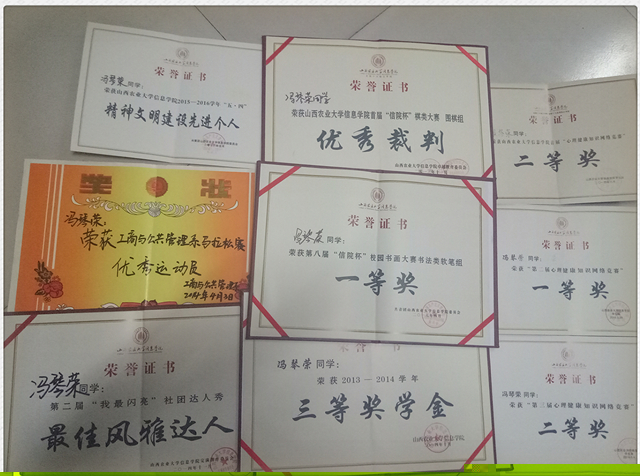 荣誉证书
冯琴荣同学：
荣获山西农业大学信息学院2013-2014学年"五·四"
精神文明建设先进个人
荣誉证书
冯琴荣同学
荣获山西农业大学信息学院首届"信院杯"棋类大赛 围棋组
优秀裁判
荣誉证书
同学：
二等奖
奖状
冯琴荣：
荣获工商与公共管理系马拉松赛
优秀运动员
工商与公共管理系
荣誉证书
同学：
荣获第八届"信院杯"校园书画大赛书法类软笔组
一等奖
荣誉证书
冯琴荣同学：
荣获"第二届心理健康知识网络竞赛"
一等奖
荣誉证书
冯琴荣同学：
第二届"我最闪亮"社团达人秀
最佳风雅达人
荣誉证书
冯琴荣同学：
荣获2013—2014学年
三等奖学金
山西农业大学信息学院
荣誉证书
冯琴荣同学：
荣获"第三届心理健康知识网络竞赛"
二等奖